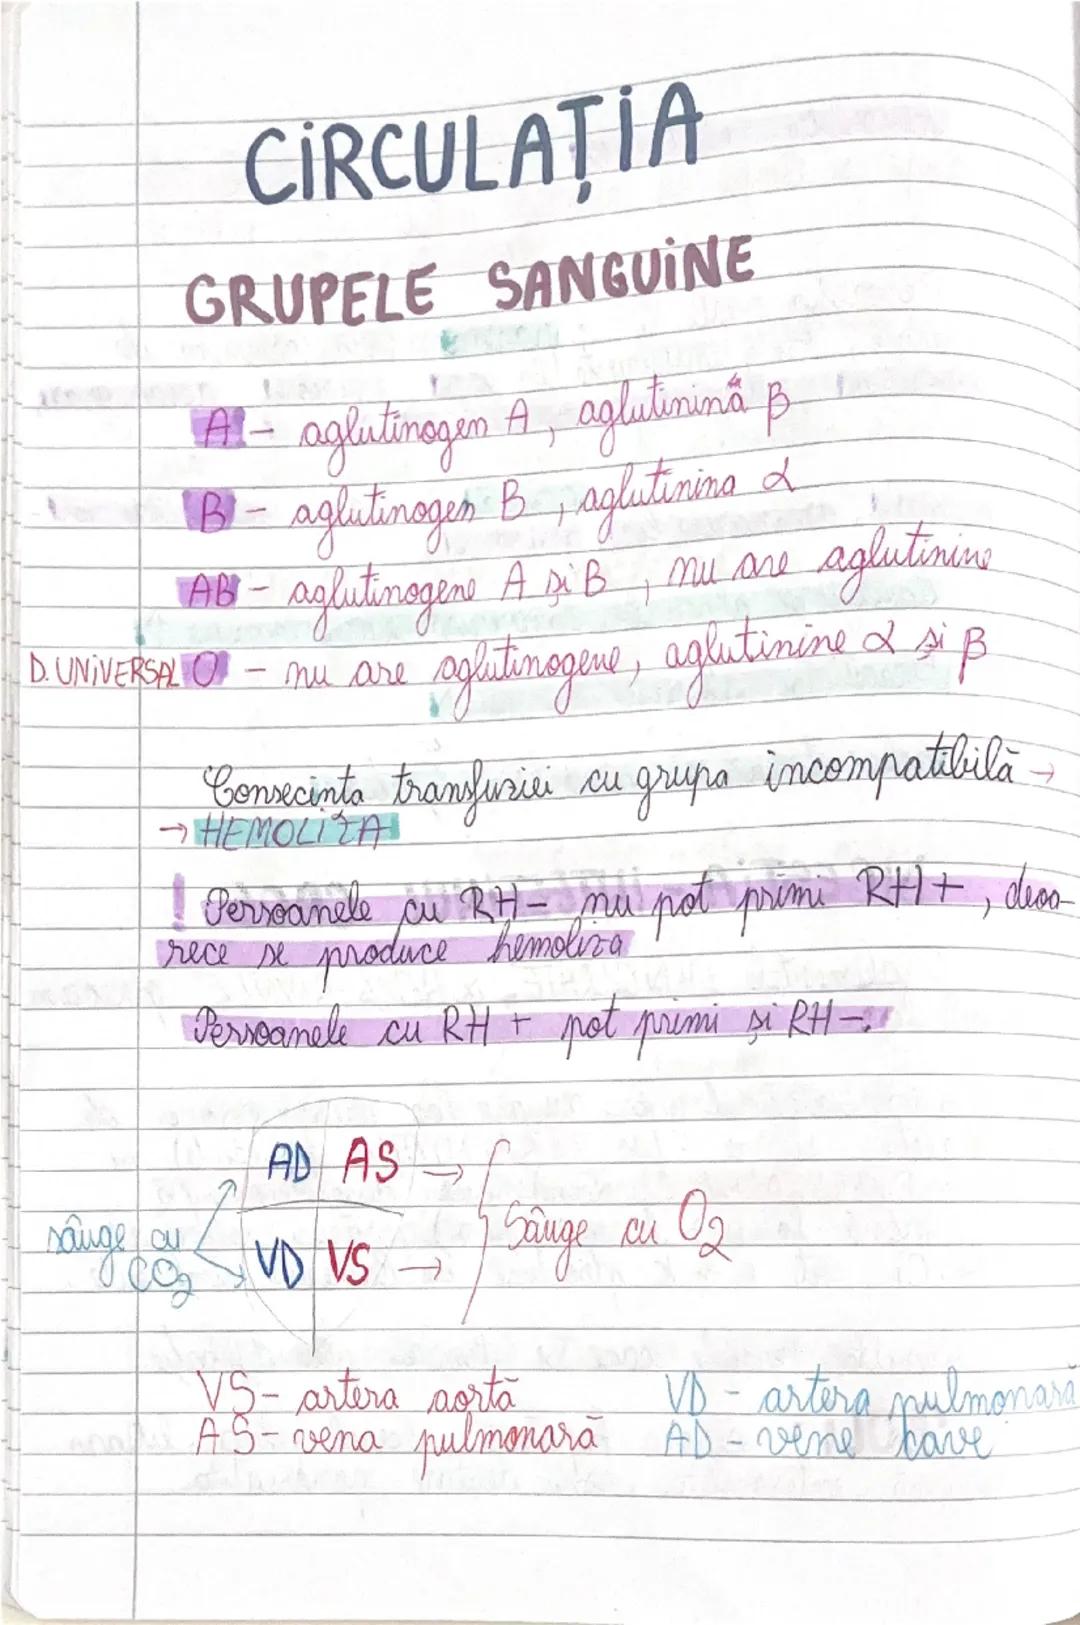 CIRCULAȚIA
GRUPELE SANGUINE
A - aglutinogen A, aglutinină β
B - aglutinogen B, aglutinina α
AB - aglutinogene A și B, nu are aglutinine
D. UNIVERSAL O - nu are aglutinogene, aglutinine α și β
Consecința transfuziei cu grupa incompatibilă →
→ HEMOLIZA
! Persoanele cu RH- nu pot primi RH+, deoa-
rece se produce hemoliza
Persoanele cu RH+ pot primi și RH-.
AD AS →
sânge cu
CO2
Sânge cu O2
VD VS →
VS - artera aortă VD - artera pulmonară
AS - vena pulmonară AD - vene cave